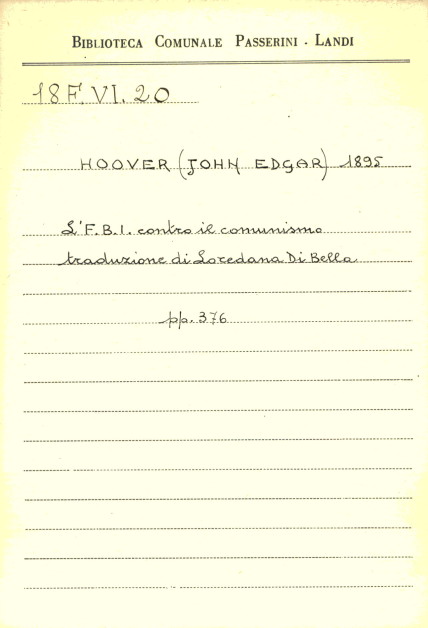 BIBLIOTECA COMUNALE PASSERINI - LANDI
18 F. VI. 20
HOOVER (JOHN EDGAR) 1895
L'F.B.I. contro il comunismo
traduzione di Loredana Di Bella
pp. 376